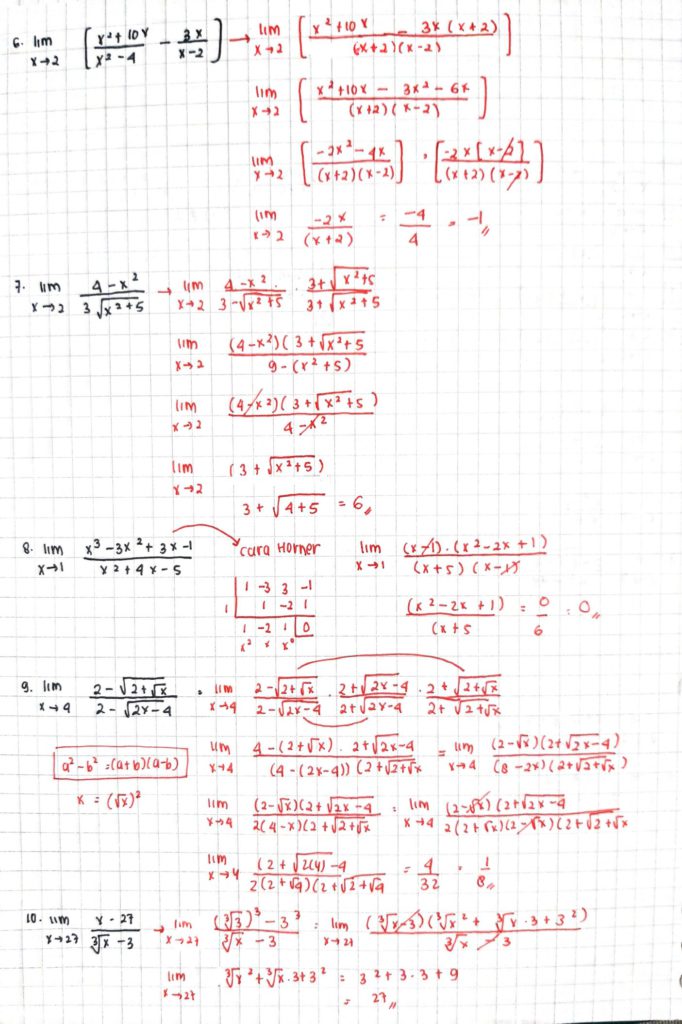 6. lim x→2 [ (x² + 10x)/(x² - 4) - 3x/(x-2) ] → lim x→2 [ (x² + 10x - 3x(x+2))/((x+2)(x-2)) ]
lim x→2 [ (x² + 10x - 3x² - 6x)/((x+2)(x-2)) ]
lim x→2 [ (-2x² - 4x)/((x+2)(x-2)) ] = [ (-2x[x-2])/((x+2)(x-2)) ]
lim x→2 (-2x)/(x+2) = -4/4 = -1
7. lim x→2 (4-x²)/(3√(x²+5)) → lim x→2 (4-x²)/(3-√(x²+5)) · (3+√(x²+5))/(3+√(x²+5))
lim x→2 ((4-x²)(3+√(x²+5))/(9-(x²+5))
lim x→2 ((4-x²)(3+√(x²+5))/(4-x²)
lim x→2 (3+√(x²+5))
3+√(4+5) = 6
8. lim x→1 (x³-3x²+3x-1)/(x²+4x-5) cara Horner lim x→1 ((x-1).(x²-2x+1))/((x+5)(x-1))
1 -3 3 -1
1 1 -2 1
1 -2 1 0
x² x x⁰
(x²-2x+1)/(x+5 = 0/6 = 0
9. lim x→4 (2-√(2+√x))/(2-√(2x-4)) = lim x→4 (2-√(2+√x))/(2-√(2x-4)) · (2+√(2x-4))/(2+√(2x-4)) · (2+√(2+√x))/(2+√(2+√x))
lim x→4 (4-(2+√x) . 2+√(2x-4))/((4-(2x-4))(2+√(2+√x)) = lim x→4 ((2-√x)(2+√(2x-4)))/((8-2x)(2+√(2+√x)))
a²-b² = (a+b)(a-b)
x = (√x)²
lim x→4 ((2-√x)(2+√(2x-4))/(2(4-x)(2+√(2+√x)) = lim x→4 ((2-√x)(2+√(2x-4))/(2(2+√x)(2-√x)(2+√(2+√x))
lim x→4 (2+√(2(4)-4))/(2(2+√4)(2+√(2+√4)) = 4/32 = 1/8
10. lim x→27 (x-27)/(∛x-3) → lim x→27 ((∛3)³-3³)/(∛x-3) = lim x→27 ((∛x-3)(∛x²+∛x·3+3²))/(∛x-3)
lim x→27 ∛x²+∛x.3+3² = 3²+3.3+9
= 27